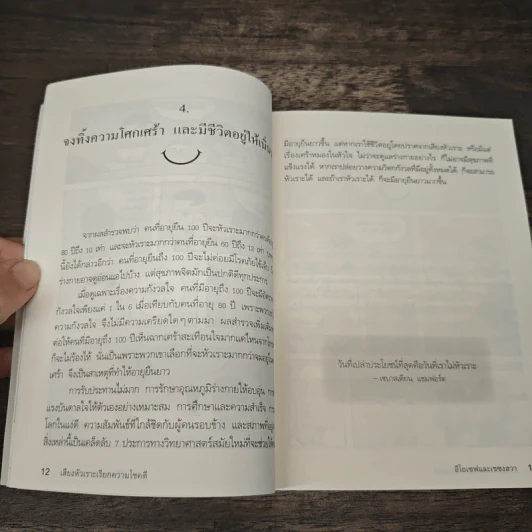 4.
จงทิ้งความโศกเศร้า และมีชีวิตอยู่ให้
จากผลสำรวจพบว่า คนที่อายุยืน 100 ปีจะหัวเราะมากกว่า
80 ปีถึง 10 เท่า และจะหัวเราะมากกว่าคนที่อายุยืน 60 ปีถึง 12 เท่า
นี้ยังได้กล่าวอีกว่า คนที่อายุยืนถึง 100 ปีจะไม่ค่อยมีโรคภัยไข้เจ็บ
ร่างกายอาจดูอ่อนแอไปบ้าง แต่สุขภาพจิตมักเป็นปกติดีทุกประการ
เมื่อดูเฉพาะเรื่องความกังวลใจ คนที่มีอายุถึง 100 ปีจะมี
กังวลใจเพียงแค่ 1 ใน 6 เมื่อเทียบกับคนที่อายุ 80 ปี เพราะ
ความกังวลใจ จึงไม่มีความเครียดใดๆ ตามมา ผลสำรวจ
ต่อให้คนที่มีอายุถึง 100 ปีเห็นฉากเศร้าสะเทือนใจมากแค่ไหน
ก็จะไม่ร้องไห้ นั่นเป็นเพราะพวกเขาเลือกที่จะหัวเราะมากกว่า
เศร้า จึงเป็นสาเหตุที่ทำให้อายุยืนยาว
การรับประทานไม่มาก การรักษาอุณหภูมิร่างกายให้อบอุ่น
แรงบันดาลใจให้ตัวเองอย่างเหมาะสม การศึกษาและความสำเร็จ
โลกในแง่ดี ความสัมพันธ์ที่ใกล้ชิดกับผู้คนรอบข้าง และสภาพ
สิ่งเหล่านี้เป็นเคล็ดลับ 7 ประการทางวิทยาศาสตร์สมัยใหม่ที่จะช่วยให้
12 เสียงหัวเราะเรียกความโชคดี
มีอายุยืนยาวขึ้น แต่หากเราใช้ชีวิตอยู่โดยปราศจากเสียงหัวเราะ หรือมีแต่
เรื่องเศร้าหมองในหัวใจ ไม่ว่าจะดูแลร่างกายอย่างไร ก็ไม่อาจมีสุขภาพที่
แข็งแรงได้ หากเราปล่อยวางความวิตกกังวลที่มีอยู่ทั้งหมดได้ ก็จะสามารถ
หัวเราะได้ และถ้าเราหัวเราะได้ ก็จะมีอายุยืนยาวมากขึ้น
วันที่เปล่าประโยชน์ที่สุดคือวันที่เราไม่หัวเราะ
– เซบาสเตียน แชมฟอร์ต
อีโยเซฟและเชซงฮวา